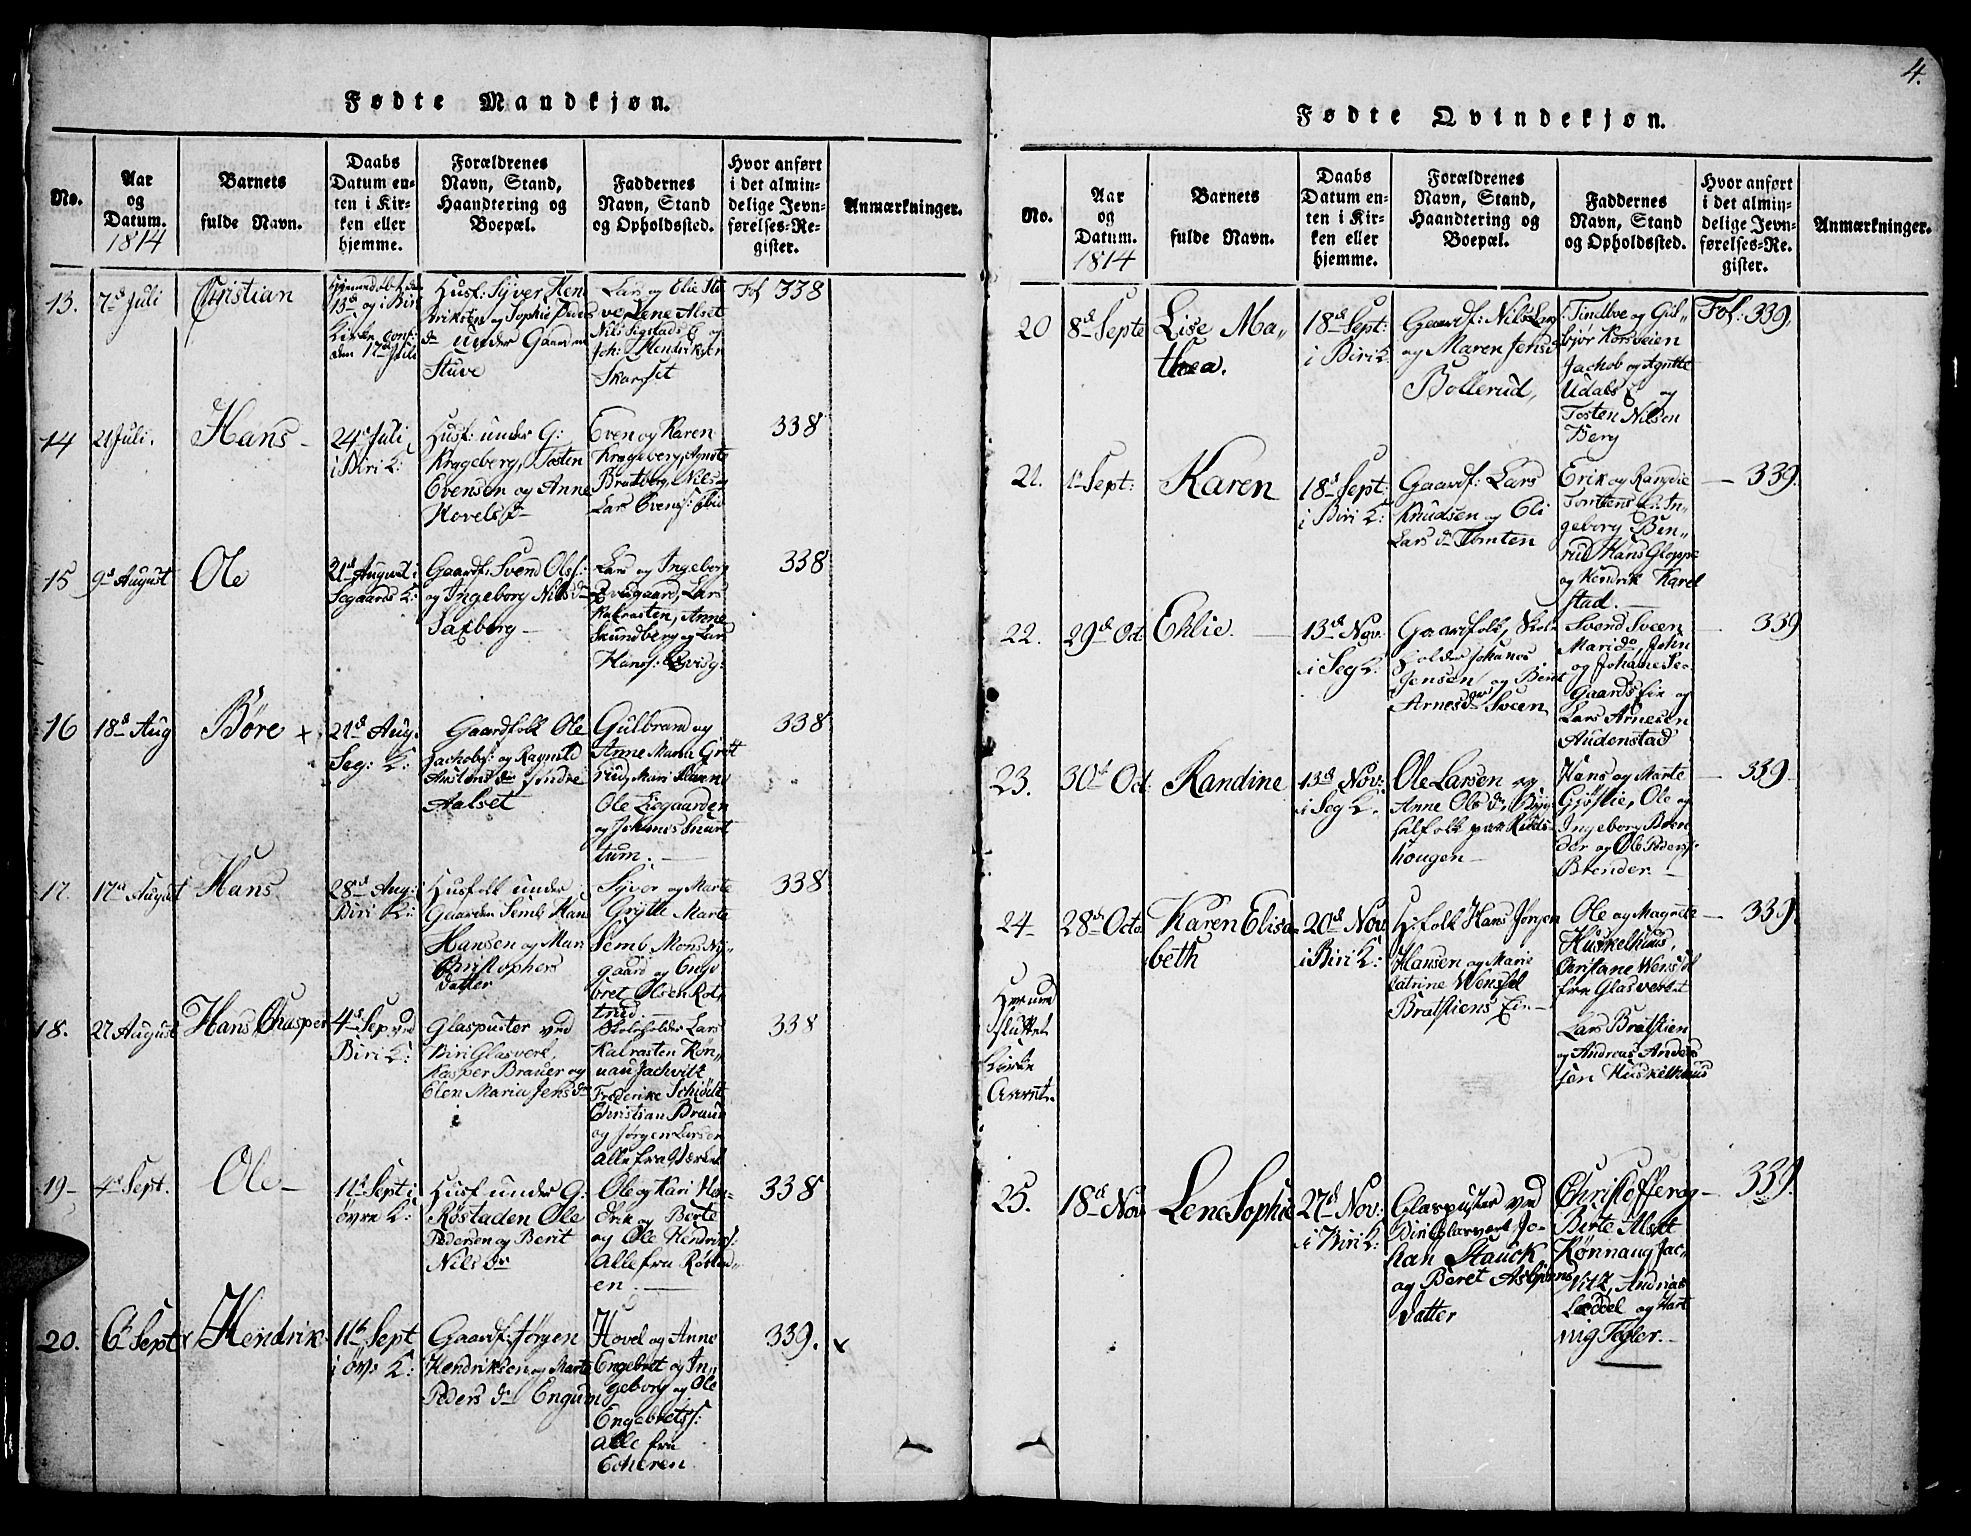 4.
Fødte Mandkjøn.
No.
Aar
og
Datum.
1814
Barnets
fulde Navn.
Daabs
Datum en-
ten i Kir-
ken eller
hjemme.
Forældrenes
Navn, Stand,
Haandtering og
Boepæl.
Faddernes
Navn, Stand
og Opholdssted.
Hvor anført
i det almin-
delige Jevn-
førelses-Re-
gister.
Anmærkninger.
13.
7de Juli
Christian
13de og i Biri
Kirke conf:
den 17de Juli
Husf: Syver Hen
driksen og Sophie Peders
dr under Gaarden
Stuve
Lars og Elie Stu
ve Lene Alset
Nils Sigstads E og
Joh: Hendriksen
Skarset
Fol 338
14
21 Juli.
Hans -
24de Juli
i Biri K:
Husf: under G:
Krageberg, Tosten
Evensen og Anne
Hovels dr
Even og Karen
Krageberg, Agnete
Bratberg, Nils og
Lars Evens: ibid
338
15
9de August
Ole
21de August i
Segaards K:
Gaardf: Svend Ols:
og Ingeborg Nils dr
Saxberg -
Lars og Ingeborg
Qvisgaard, Lars
Kalrasten, Anne
Skundberg og Lars
Hans: Qvisg:
338
16
18de Aug
Børe +
21de Aug.
Seg: K:
Gaardfolk Ole
Jachobs: og Ragnild
Austens dr Indre
Aalset
Gulbrand og
Anne Maria Gröt
rud, Mari
Ole Liegaarden
og Johannes Snart
tum. -
338
17.
17de August
Hans
28de Aug:
Biri K:
Husfolk under
Gaarden Semb, Hans
Hansen og Mari
Christophers
datter
Syver og Marte
Grytte Marte
Semb Mons Ny-
gaard og Enge
bret Olsen Rot
trud
338
18.
27 August
Hans Chasper
4de Sep ved
Biri K:
Glaspuster ved
Biri Glasverk,
Kasper Brauer og
Elen Maria Jens dr
Lars
Kalrasten Røn-
nau Jachvitz
Frederike Schiøtt
Christian Braun
og Jørgen Larsen
alle fra Værket
338
19 -
4de Sept.
Ole -
11de Sept i
øvre K:
Husf under G:
Røstaden Ole
Pedersen og Berit
Nils dr
Ole og Kari Hen-
drik og Berte
og Ole Hendriks:
Alle fra Røstad-
en. -
338
20.
6te Sept
Hendrik
11te Sept
i øvr K:
Gaardf: Jørgen
Hendriksen og Marte
Peders dr Engum
Hovel og Anne
Engebret og In-
geborg og Ole
Engebrets:
alle fra
Echeren
339.
x
Fødte Qvindekjøn.
No.
Aar
og
Datum.
1814
Barnets
fulde Navn.
Daabs
Datum en-
ten i Kir-
ken eller
hjemme.
Forældrenes
Navn, Stand,
Haandtering og
Boepæl.
Faddernes
Navn, Stand
og Opholdssted.
Hvor anført
i det almin-
delige Jevn-
førelses-Re-
gister.
Anmærkninger.
20
8de Septe
Lise Ma-
thea.
18de Sept:
i Biri K
Gaardf: Nils Lar
og Maren Jens dr
Bollerud,
Tindlve og Gul-
bjør Korsveien
Jachob og Agnette
Udals E og
Tosten Nilsen
Berg
Fol: 339,
21.
1te Sept:
Karen
18de Sept:
i Biri K:
Gaardf: Lars
Knudsen og Eli
Lars dr Tømten
Erik og Randie
Tømtens Ein In-
geborg Ben-
rud Hans Glopp
og Hendrik Karel
stad.
- 339.
22.
29de Oct
Ehlie. -
13de Nov:
i Seg K:
Gaardfolk, Skol
holder Johanes
Jensen og Berit
Arnes dr Sveen
Svend Sveen
Mari do, John
og Johane Se-
gaards Ein og
Lars Arnesen
Audenstad
- 339
23.
30te Oct
Randine
13de Nov:
i Seg K.
Ole Larsen og
Anne Ols dr, Byg
selfolk paa Kiels-
hougen -
Hans og Marte
Gjøstie, Ole og
Ingeborg Bren
der og Ole Peders:
Brender. -
- 339 -
24 -
28de Octo
Karen Elisa
beth
20de Nov
i Biri K:
H:folk Hans Jørgen
Hansen og Marie
Catrine Wensel
Bratstiens Ein -
Ole og Magnete
Huskelhuus,
Christiane Wensel
fra Glasverket
Lars Bratstien
og Andreas Anders
sen Huskelhuus
- 339.
Her un
sluttet
Kirke
Aaret.
25.
18de Nov
Lene Sophie
27de Nov:
i Biri K:
Glaspuster ved
Biri Glasverk Jo-
han Stauck
og Beret Asbjørns
datter
Christoffer og
Birte Alset
Rønnaug Jac-
Vitz, Andreas
Læddel og Hart
vig Tøgler. -
- 339.